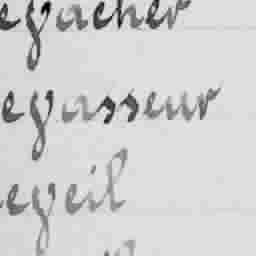 egacher
egasseur
egeil